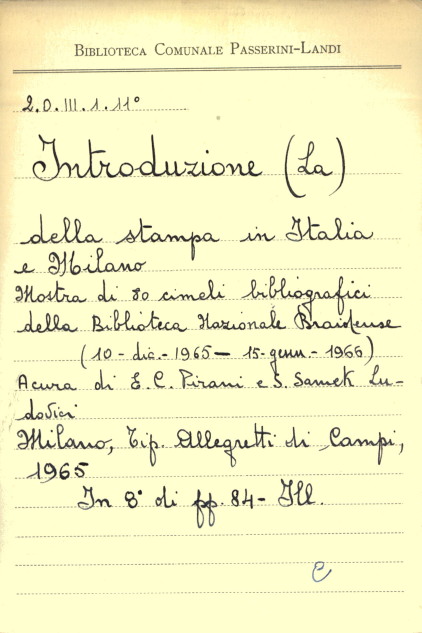 BIBLIOTECA COMUNALE PASSERINI-LANDI
2.0.III.1.11°
Introduzione (La)
della stampa in Italia
e Milano
Mostra di 80 cimeli bibliografici
della Biblioteca Nazionale Braidense
(10-dic.-1965— 15-genn.-1966)
Acura di E.C. Pirani e S. Samek Lu-
dovici
Milano, Tip. Allegretti di Campi,
1965
In 8° di pp. 84- Ill.
C